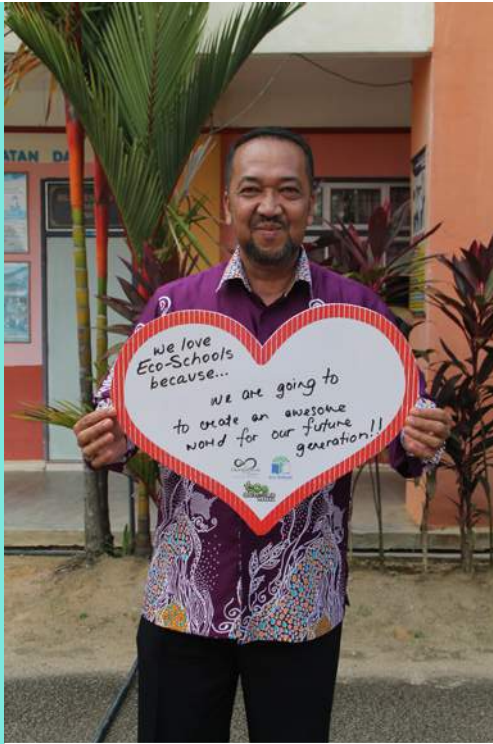 ATAN DA
We love
Eco-Schools
because...
we are going to
to create an awesome
world for our future
generation!!
Eco-Schools